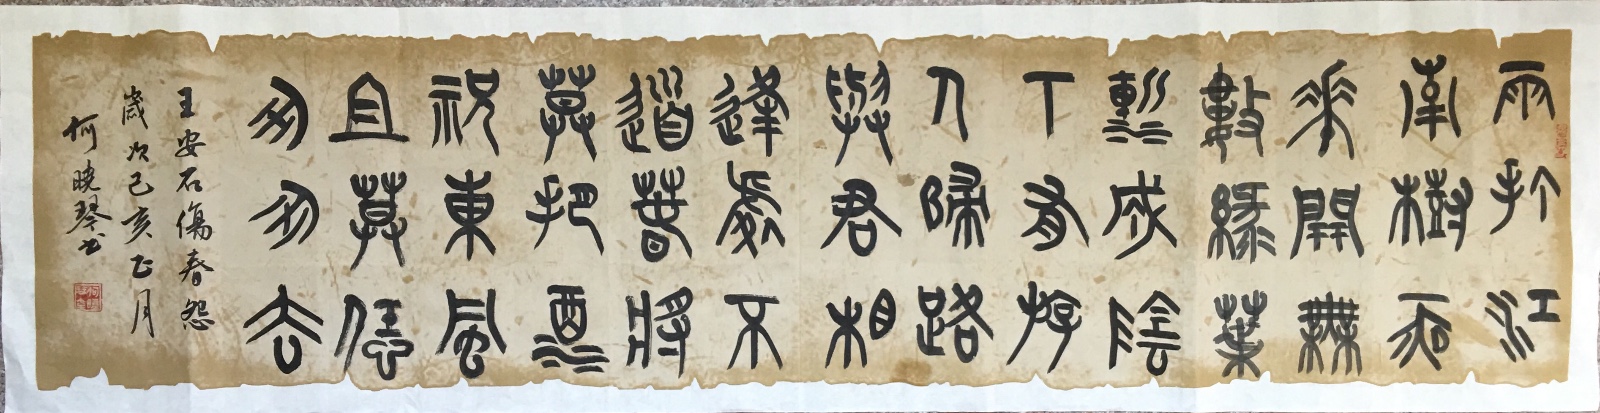 雨打江
南樹一夜
花開無
數綠葉
漸成陰
下有游
人歸路
與君相
逢處不
道春將
暮把酒
祝東風
且莫恁
匆匆去
王安石傷春怨
歲次己亥正月
何曉琴书